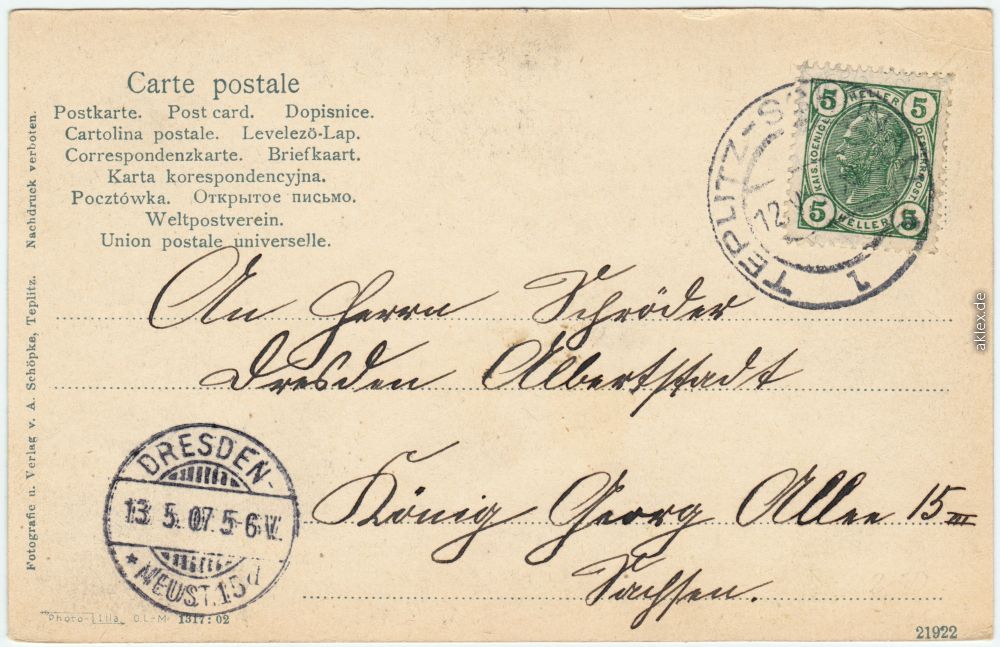 Carte postale
Postkarte. Post card. Dopisnice.
Cartolina postale. Levelezö-Lap.
Correspondenzkarte. Briefkaart.
Karta korespondencyjna.
Pocztówka. Открытое письмо.
Weltpostverein.
Union postale universelle.
5 HELLER 5
KAIS. KOENIGL.
5 HELLER 5
TEPLITZ-S
12
1
An Herrn Schröder
Dresden Albertstadt
König Georg Allee 15 III
Sachsen.
DRESDEN-
13 5. 07. 5-6 V.
* NEUST. 15d
Fotografie u. Verlag v. A. Schöpke, Teplitz. Nachdruck verboten.
Photo-Lila O.L-M 1317: 02
21922
aklex.de